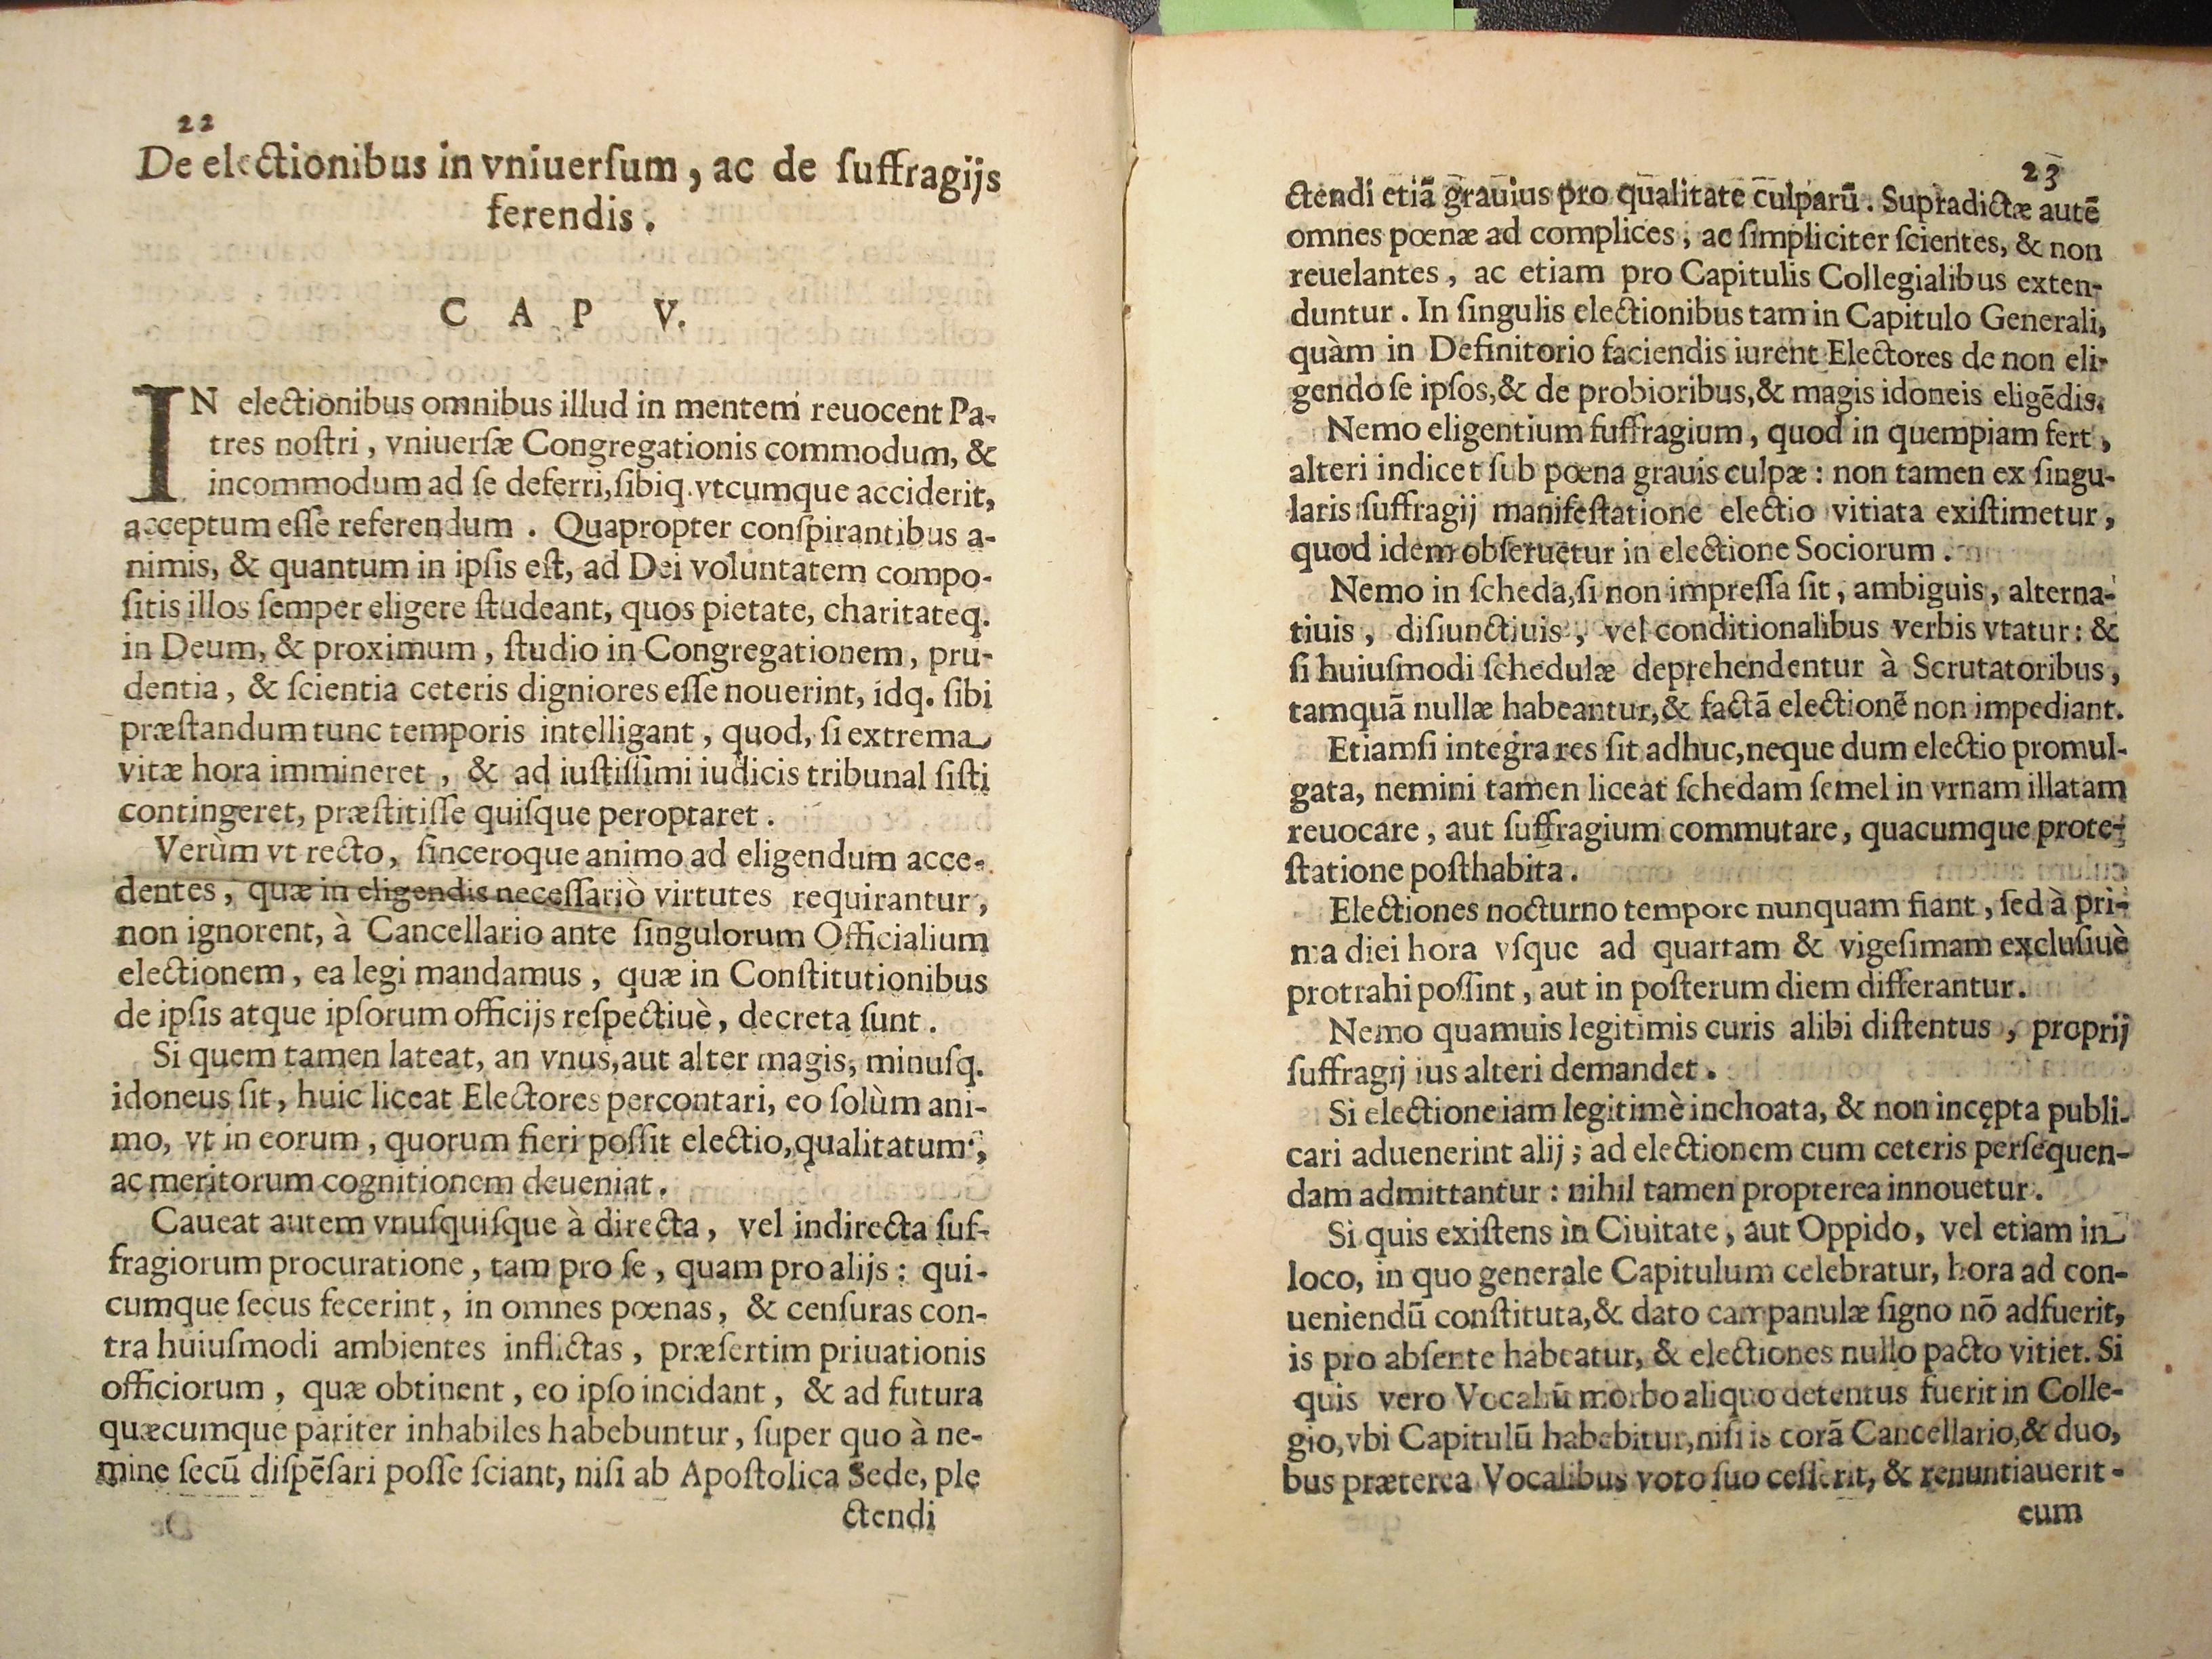 22
De electionibus in vniuerſum, ac de ſuffragijs
ferendis.
CAP V.
IN electionibus omnibus illud in mentem reuocent Pa-
tres noſtri, vniuerſæ Congregationis commodum, &
incommodum ad ſe deferri, ſibiq. vtcumque acciderit,
acceptum eſſe referendum. Quapropter conſpirantibus a-
nimis, & quantum in ipſis eſt, ad Dei voluntatem compo-
ſitis illos ſemper eligere ſtudeant, quos pietate, charitateq.
in Deum, & proximum, ſtudio in Congregationem, pru-
dentia, & ſcientia ceteris digniores eſſe nouerint, idq. ſibi
præſtandum tunc temporis intelligant, quod, ſi extrema
vitæ hora immineret, & ad iuſtiſſimi iudicis tribunal ſiſti
contingeret, præſtitiſſe quiſque peroptaret.
Verùm vt recto, ſinceroque animo ad eligendum acce-
dentes, quæ in eligendis neceſſariò virtutes requirantur,
non ignorent, à Cancellario ante ſingulorum Officialium
electionem, ea legi mandamus, quæ in Conſtitutionibus
de ipſis atque ipſorum officijs reſpectiuè, decreta ſunt.
Si quem tamen lateat, an vnus, aut alter magis, minuſq.
idoneus ſit, huic liceat Electores percontari, eo ſolùm ani-
mo, vt in eorum, quorum fieri poſſit electio, qualitatum,
ac meritorum cognitionem deueniat.
Caueat autem vnuſquiſque à directa, vel indirecta ſuf-
fragiorum procuratione, tam pro ſe, quam pro alijs: qui-
cumque ſecus fecerint, in omnes pœnas, & cenſuras con-
tra huiuſmodi ambientes inflictas, præſertim priuationis
officiorum, quæ obtinent, eo ipſo incidant, & ad futura
quæcumque pariter inhabiles habebuntur, ſuper quo à ne-
mine ſecū diſpēſari poſſe ſciant, niſi ab Apoſtolica Sede, ple
ctendi
23
ctendi etiā grauius pro qualitate culparū. Supradictæ autē
omnes pœnæ ad complices, ac ſimpliciter ſcientes, & non
reuelantes, ac etiam pro Capitulis Collegialibus exten-
duntur. In ſingulis electionibus tam in Capitulo Generali,
quàm in Definitorio faciendis iurent Electores de non eli-
gendo ſe ipſos, & de probioribus, & magis idoneis eligēdis.
Nemo eligentium ſuffragium, quod in quempiam fert,
alteri indicet ſub pœna grauis culpæ: non tamen ex ſingu-
laris ſuffragij manifeſtatione electio vitiata exiſtimetur,
quod idem obſeruetur in electione Sociorum.
Nemo in ſcheda, ſi non impreſſa ſit, ambiguis, alterna-
tiuis, diſiunctiuis, vel conditionalibus verbis vtatur: &
ſi huiuſmodi ſchedulæ deprehendentur à Scrutatoribus,
tamquā nullæ habeantur, & factā electionē non impediant.
Etiamſi integra res ſit adhuc, neque dum electio promul-
gata, nemini tamen liceat ſchedam ſemel in vrnam illatam
reuocare, aut ſuffragium commutare, quacumque prote-
ſtatione poſthabita.
Electiones nocturno tempore nunquam fiant, ſed à pri-
ma diei hora vſque ad quartam & vigeſimam excluſiuè
protrahi poſſint, aut in poſterum diem differantur.
Nemo quamuis legitimis curis alibi diſtentus, proprij
ſuffragij ius alteri demandet.
Si electione iam legitimè inchoata, & non incępta publi-
cari aduenerint alij; ad electionem cum ceteris perſequen-
dam admittantur: nihil tamen propterea innouetur.
Si quis exiſtens in Ciuitate, aut Oppido, vel etiam in
loco, in quo generale Capitulum celebratur, hora ad con-
ueniendū conſtituta, & dato campanulæ ſigno nō adfuerit,
is pro abſente habeatur, & electiones nullo pacto vitiet. Si
quis vero Vocaliū morbo aliquo detentus fuerit in Colle-
gio, vbi Capitulū habebitur, niſi is corā Cancellario, & duo,
bus præterea Vocalibus voto ſuo ceſſerit, & renuntiauerit-
cum